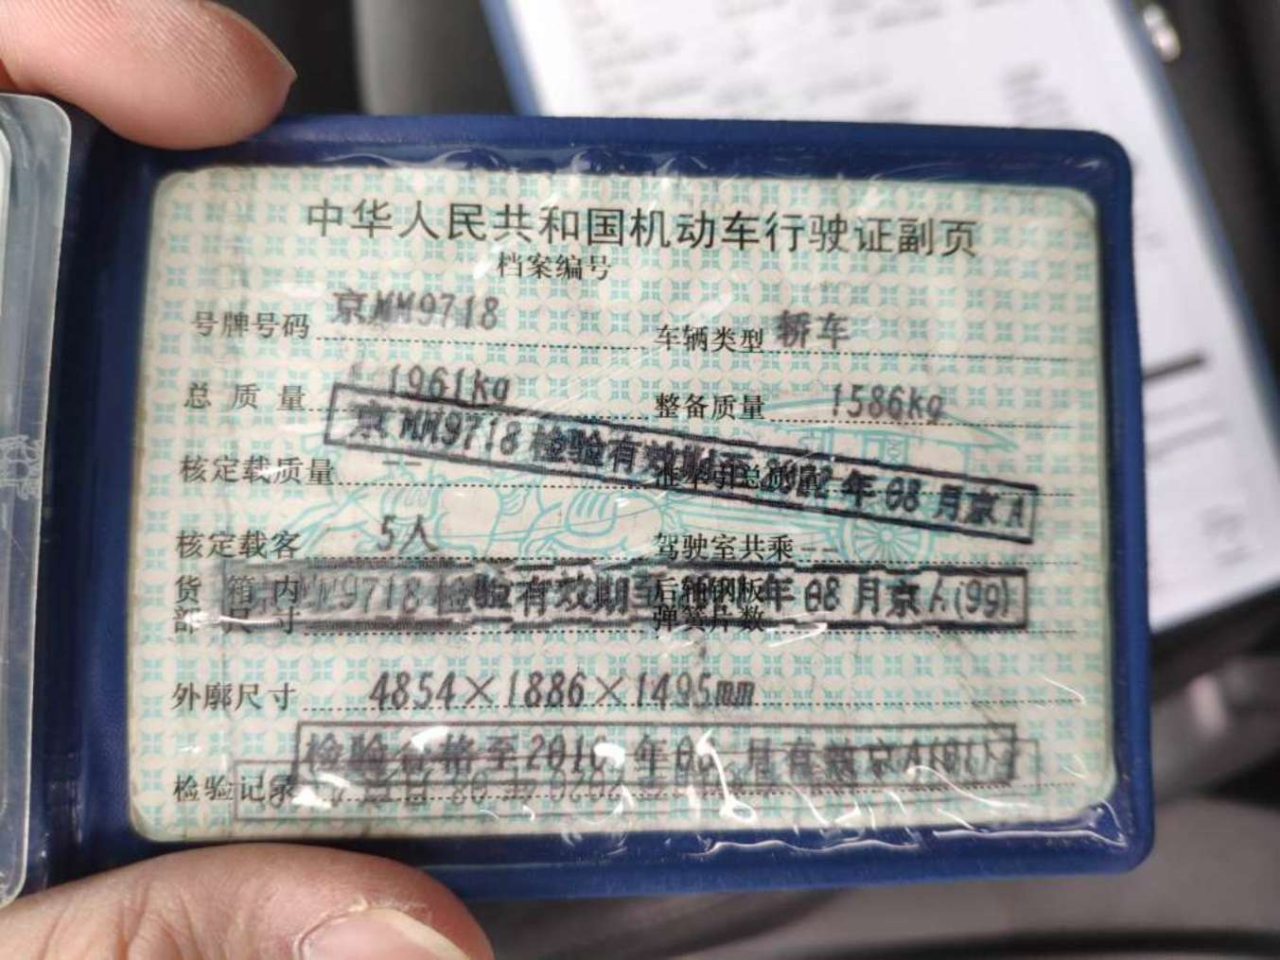 中华人民共和国机动车行驶证副页
档案编号
号牌号码 京MM9718 车辆类型 轿车
总质量 1961kg 整备质量 1586kg
京MM9718 检验有效期至2022年08月京A
核定载质量 -- 准牵引总质量
核定载客 5人 驾驶室共乘 --
货箱内部尺寸 后轴钢板弹簧片数
MM9718 检验有效期至 年08月京A(99)
外廓尺寸 4854×1886×1495mm
检验合格至201 年08月有效京A
检验记录